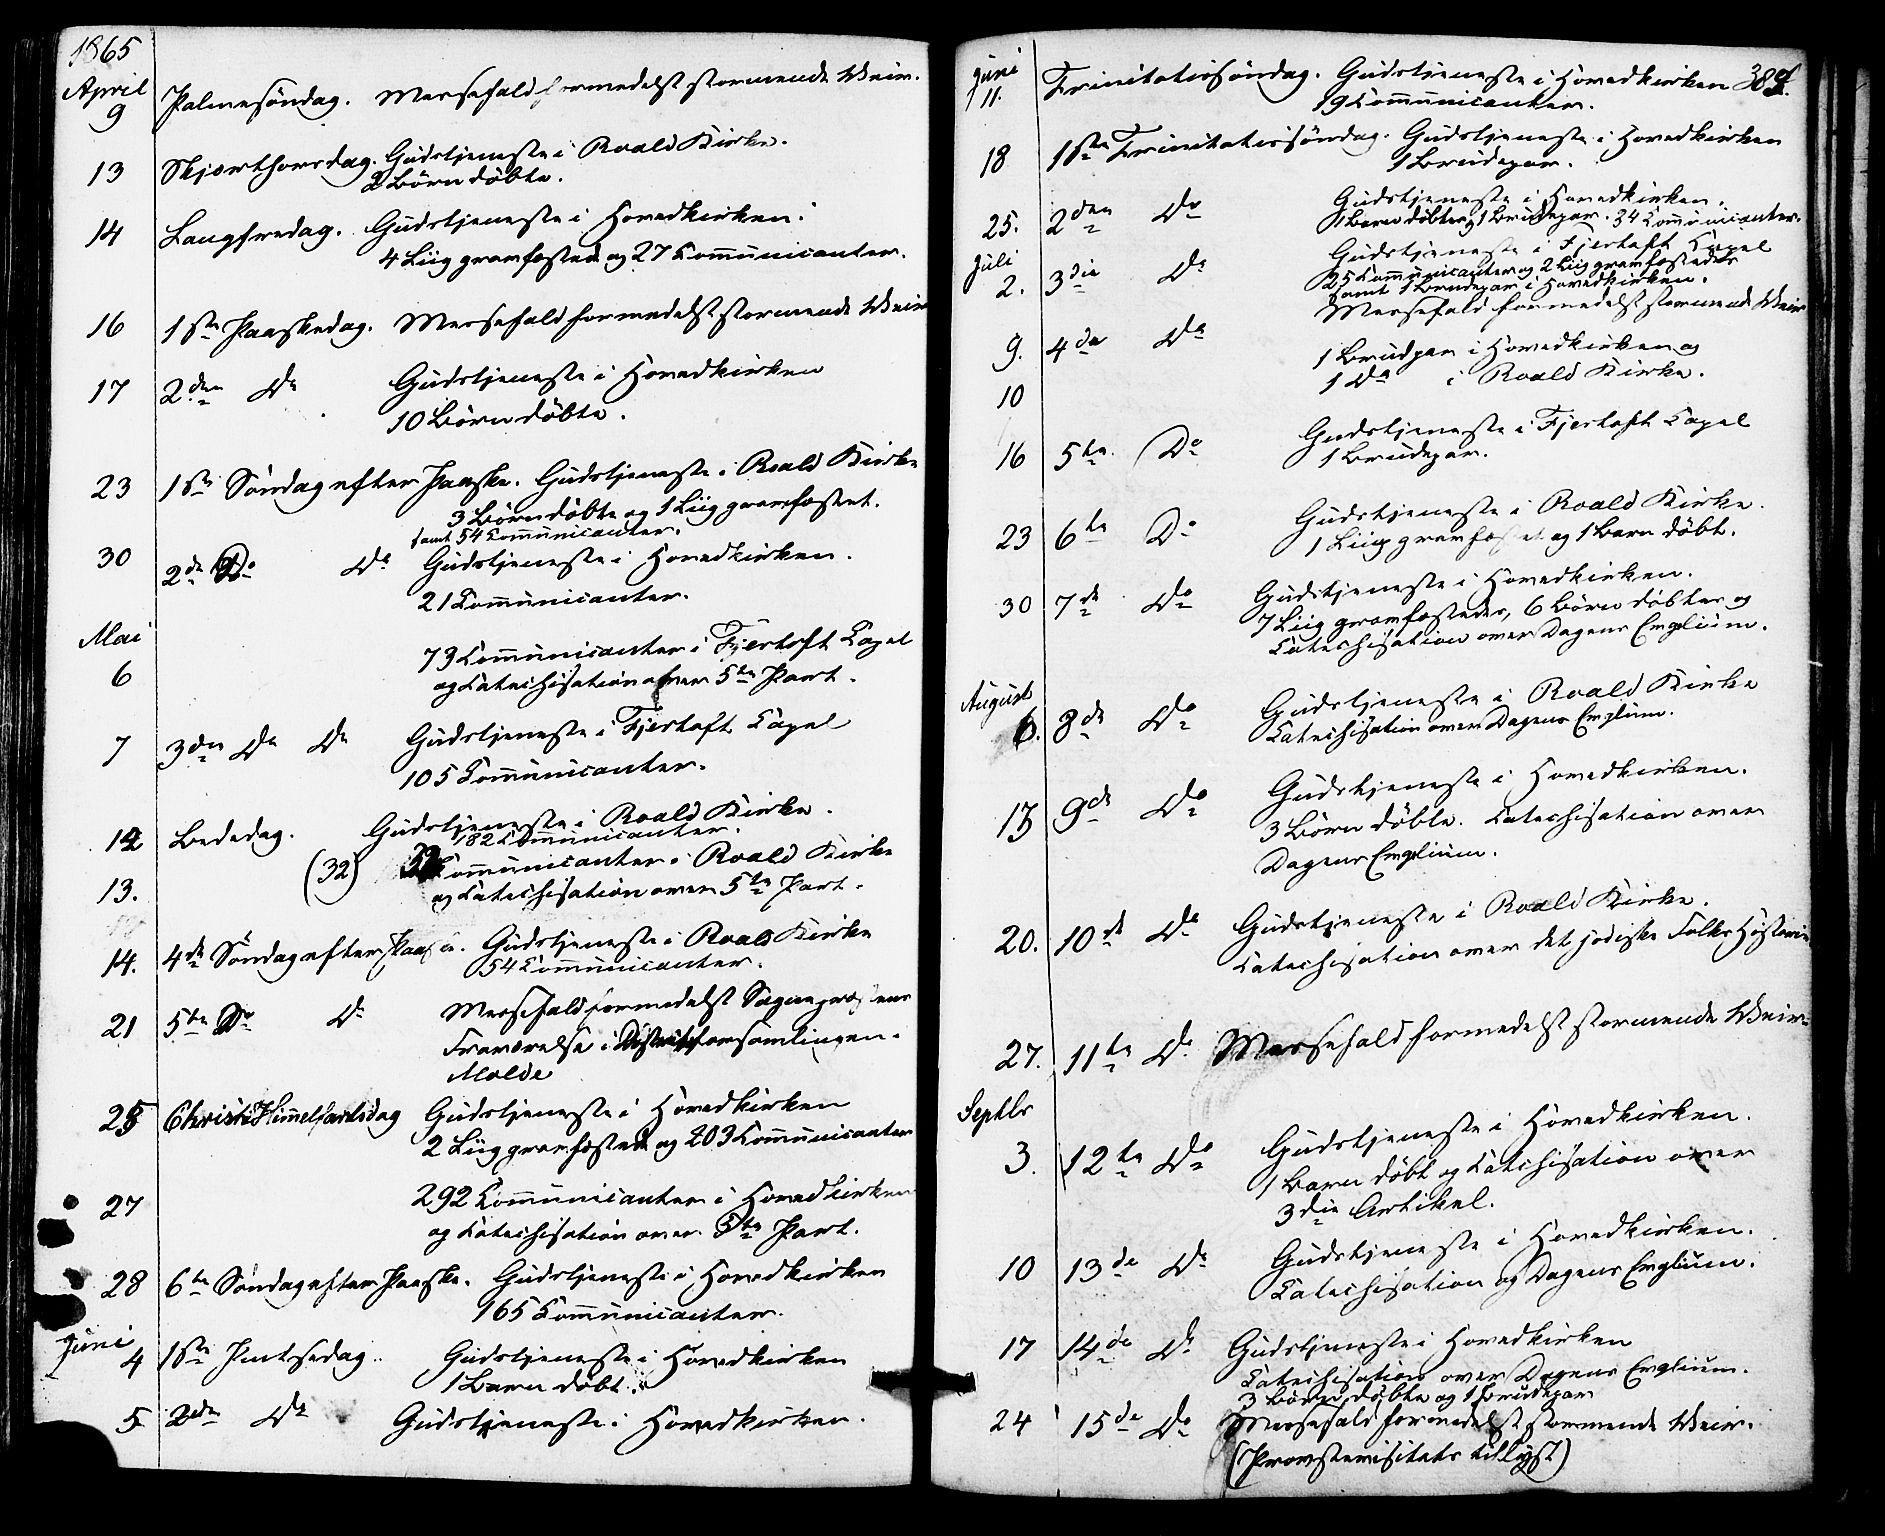 1865
April
9 Palmesöndag. Messefald formedelst stormende Veir.
13 Skjærthorsdag. Gudstjeneste i Roald Kirke.
2 Börn döbte.
14 Langfredag. Gudstjeneste i Hovedkirken.
4 Liig gravfæstede og 27 Communicanter.
16 1ste Paaskedag. Messefald formedelst stormende Veir
17 2den Do Gudstjeneste i Hovedkirken
10 Börn döbte.
23 1ste Söndag efter Paaske. Gudstjeneste i Roald Kirke
3 Börn döbte og 1 Liig gravfæstet.
samt 54 Communicanter.
30 2de Do Do Gudstjeneste i Hovedkirken.
21 Communicanter.
Mai
6 73 Communicanter i Fjertoft Capel
og Catechisation over 5te Part.
7 3die Do Do Gudstjeneste i Fjertoft Capel
105 Communicanter.
12 Bededag. Gudstjeneste i Roald Kirke.
182 Communicanter.
13. (32) Communicanter i Roald Kirke
og Catechisation over 5te Part.
14. 4de Söndag efter Paaske. Gudstjeneste i Roald Kirke
54 Communicanter.
21 5te Do Do Messefald formedelst Sognepræstens
Fraværelse i Distriktsforsamlingen.
Molde
25 Christi Himmelfartsdag Gudstjeneste i Hovedkirken
2 Liig gravfæstede og 203 Communicanter
27 292 Communicanter i Hovedkirken
og Catechisation over 5te Part.
28 6te Söndag efter Paaske. Gudstjeneste i Hovedkirken
165 Communicanter.
Juni
4 1ste Pintsedag. Gudstjeneste i Hovedkirken
1 Barn döbt.
5 2den Do Gudstjeneste i Hovedkirken.
384.
Juni
11. Trinitatissöndag. Gudstjeneste i Hovedkirken
19 Communicanter.
18 1ste Trinitatissöndag. Gudstjeneste i Hovedkirken
1 Brudepar.
25. 2den Do Gudstjeneste i Hovedkirken.
1 Barn döbt og 1 Brudepar. 34 Communicanter.
Juli
2. 3die Do Gudstjeneste i Fjertoft Capel
25 Communicanter og 2 Liig gravfæstede
samt 1 Brudepar i Hovedkirken.
9. 4de Do Messefald formedelst stormende Veir
10 1 Brudpar i Hovedkirken og
1 Do i Roald Kirke.
16 5te Do Gudstjeneste i Fjertoft Capel
1 Brudepar.
23 6te Do Gudstjeneste i Roald Kirke.
1 Liig gravfæstet og 1 Barn döbt.
30 7de Do Gudstjeneste i Hovedkirken.
7 Liig gravfæstedes, 6 Börn döbtes og
Catechisation over Dagens Evglium.
August
6. 8de Do Gudstjeneste i Roald Kirke
Catechisation over Dagens Evglium.
13 9de Do Gudstjeneste i Hovedkirken.
3 Börn döbte. Catechisation over
Dagens Evglium.
20. 10de Do Gudstjeneste i Roald Kirke.
Catechisation over det jödiske Folks Historie
27. 11te Do Messefald formedelst stormende Veir.
Septbr
3. 12te Do Gudstjeneste i Hovedkirken.
1 Barn döbt og Catechisation over
3die Artikel.
10 13de Do Gudstjeneste i Hovedkirken.
Catechisation og Dagens Evglium.
17 14de Do Gudstjeneste i Hovedkirken
Catechisation over Dagens Evglium.
3 Börn döbte og 1 Brudepar
24 15de Do Messefald formedelst stormende Veir.
(Provstevisitats tillyst)